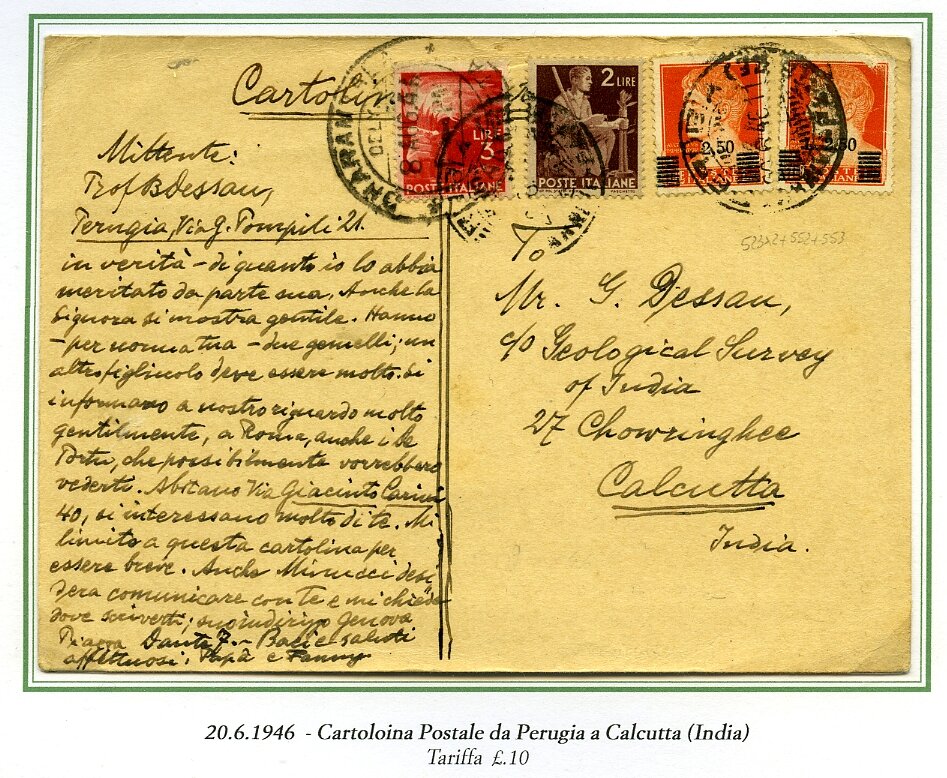 Cartolin
Mittente:
Prof B Dessau,
Perugia, Via G. Pompili 21.
in verità - di quanto io lo abbia
meritato da parte sua. Anche la
Signora si mostra gentile. Hanno
- per norma tua - due gemelli; un
altro figliuolo deve essere molto. Si
informano a nostro riguardo molto
gentilmente, a Roma, anche i De
Porto, che possibilmente vorrebbero
vederti. Abitano Via Giacinto Carini
40, si interessano molto di te. Mi
limito a questa cartolina per
essere breve. Anche Minucci desi
dera comunicare con te e mi chiede
dove scriverti; suo indirizzo Genova
Piazza Dante 7. - Baci e saluti
affettuosi. Papà e Fanny
LIRE
3
POSTE ITALIANE
2 LIRE
POSTE ITALIANE
2,50
2,50
523x2+552+553
To
Mr. G. Dessau,
c/o Geological Survey
of India
27 Chowringhee
Calcutta
India.
20.6.1946 - Cartoloina Postale da Perugia a Calcutta (India)
Tariffa £.10